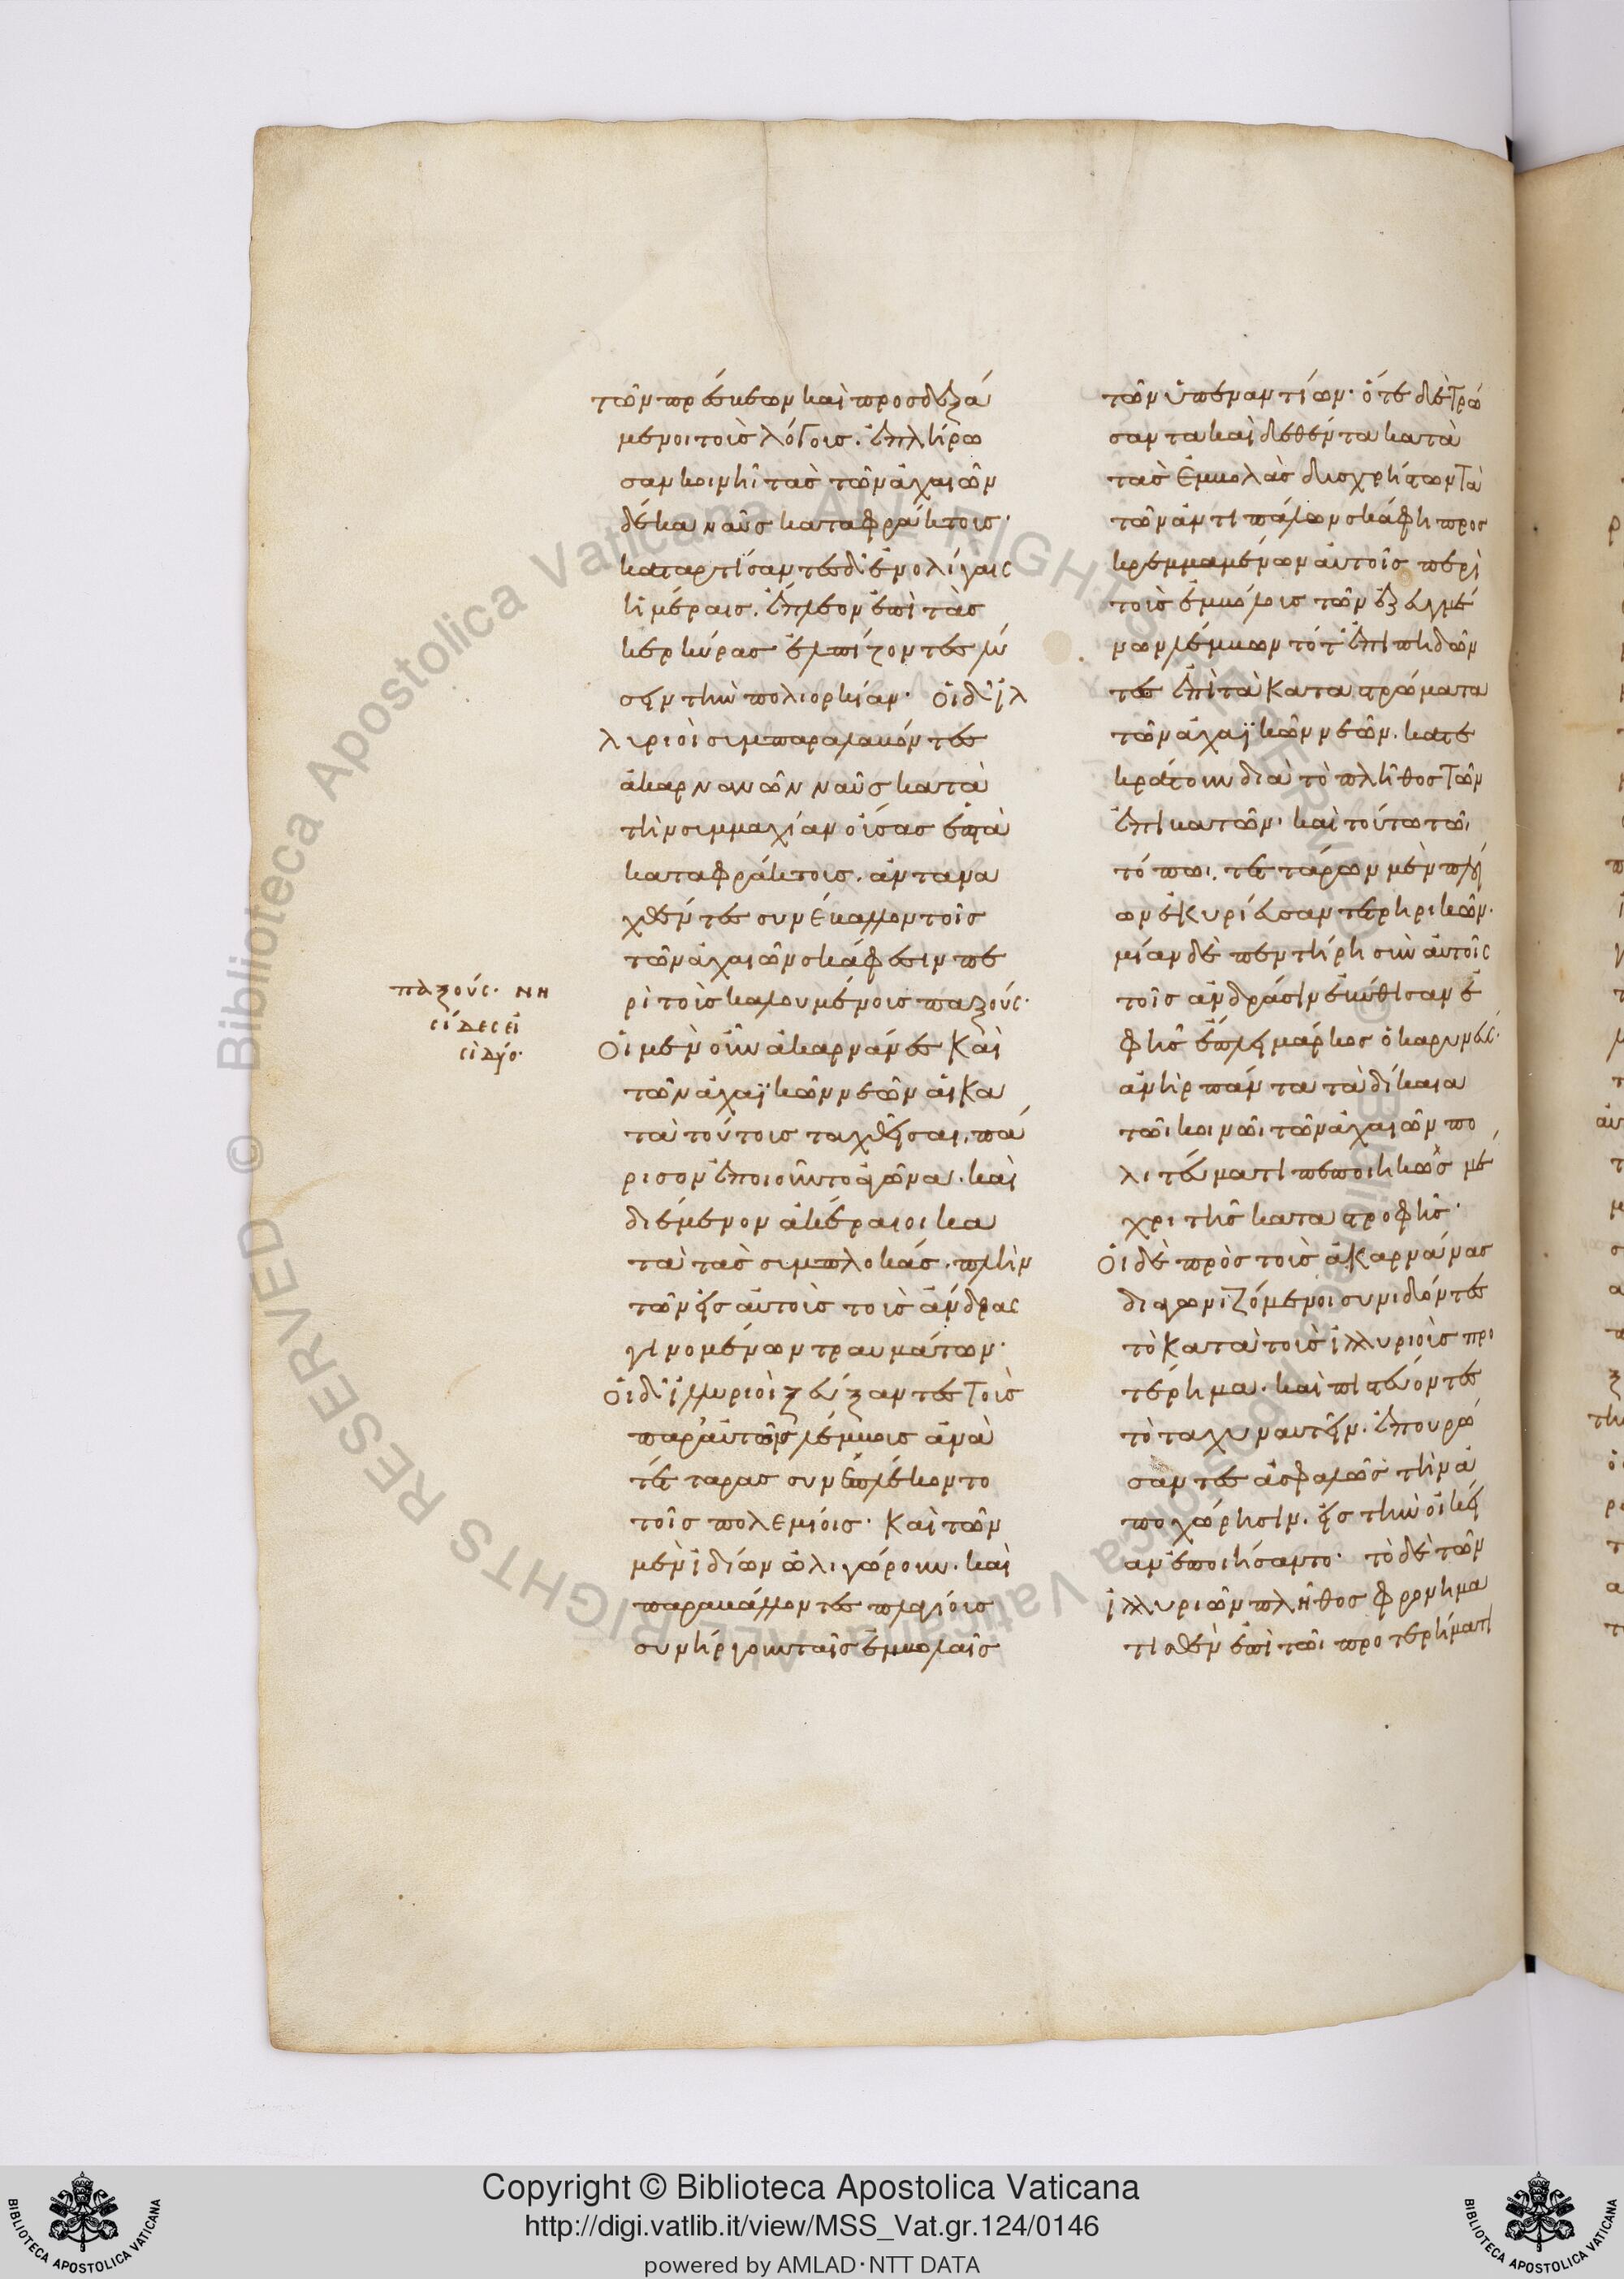 τῶν πρέσβεων καὶ προσδεξά
μενοι τοὺς λόγους. ἐπλήρω
σαν κοινῇ τὰς τῶν ἀχαιῶν
δέκα ναῦς καταφράκτους·
καταρτίσαντες δ' ἐν ὀλίγαις
ἡμέραις. ἔπλεον ἐπὶ τὰς
κερκύρας ἐλπίζοντες λύ
σειν τὴν πολιορκίαν· οἱ δ' ἰλ
λυριοὶ συμπαραλαβόντες
ἀκαρνανῶν ναῦς κατὰ
τὴν συμμαχίαν οὔσας ἑπτὰ
καταφράκτους. ἀνταγα
χθέντες συνέβαλλον τοῖς
τῶν ἀχαιῶν σκάφεσιν πε
ρὶ τοὺς καλουμένους παξούς·
οἱ μὲν οὖν ἀκαρνᾶνες καὶ
τῶν ἀχαϊκῶν νεῶν αἱ κα
τὰ τούτους ταχθεῖσαι. πά
ρισον ἐποιοῦντο ἀγῶνα. καὶ
διέμενον ἀκέραιοι κα
τὰ τὰς συμπλοκάς. πλὴν
τῶν εἰς αὐτοὺς τοὺς ἄνδρας
γινομένων τραυμάτων·
οἱ δ' ἰλλυριοὶ ζεύξαντες τοὺς
παρ' αὑτῶν λέμβους ἀνὰ
τέτταρας συνεπλέκοντο
τοῖς πολεμίοις· καὶ τῶν
μὲν ἰδίων ὠλιγώρουν. καὶ
παραβάλλοντες πλαγίους
συνήργουν ταῖς ἐμβολαῖς
παξούς· νη
σίδες εἰ
σὶ δύο·
τῶν ὑπεναντίων· ὅτε δὲ τρώ
σαντα καὶ δεθέντα κατὰ
τὰς ἐμβολὰς δυσχρήστων τὰ
τῶν ἀντιπάλων σκάφη προσ
κρεμμαμένων αὐτοῖς περὶ
τοὺς ἐμβόλους τῶν ἐζευγμέ
νων λέμβων τότ' ἐπιπηδῶν
τες ἐπὶ τὰ καταστρώματα
τῶν ἀχαϊκῶν νεῶν. κατε
κράτουν διὰ τὸ πλῆθος τῶν
ἐπιβατῶν. καὶ τούτω τῶι
τόπωι. τεττάρων μὲν πλοί
ων ἐκυρίευσαν τετρηρικῶν·
μίαν δὲ πεντήρη σὺν αὐτοῖς
τοῖς ἀνδράσιν ἐβύθισαν ἐ
φ' ἧς ἔπλει μάρκος ὁ καρυνεύς·
ἀνὴρ πάντα τὰ δίκαια
τῶι κοινῶι τῶν ἀχαιῶν πο
λιτεύματι πεποιηκὼς μέ
χρι τῆς καταστροφῆς·
οἱ δὲ πρὸς τοὺς ἀκαρνᾶνας
διαγωνιζόμενοι συνιδόντες
τὸ κατὰ τοὺς ἰλλυριοὺς προ
τέρημα. καὶ πιστεύοντες
τὸ ταχυναυτεῖν. ἐπουρώ
σαντες ἀσφαλῶς τὴν ἀ
ποχώρησιν. εἰς τὴν οἰκεί
αν ἐποιήσαντο· τὸ δὲ τῶν
ἰλλυριῶν πλῆθος φρονημα
τισθὲν ἐπὶ τῶι προτερήματι
Copyright © Biblioteca Apostolica Vaticana
http://digi.vatlib.it/view/MSS_Vat.gr.124/0146
powered by AMLAD·NTT DATA